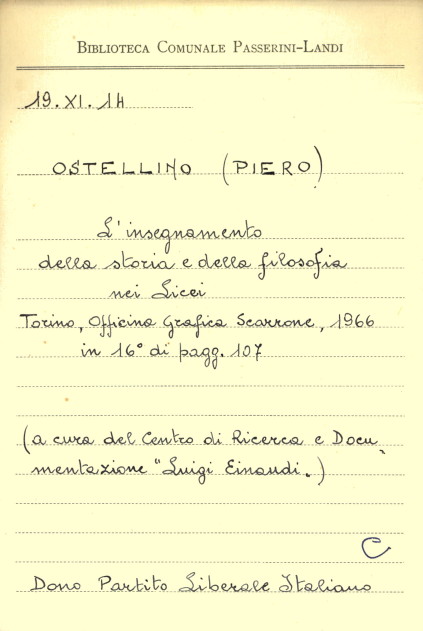 BIBLIOTECA COMUNALE PASSERINI-LANDI
19.XI.14
OSTELLINO (PIERO)
L'insegnamento
della storia e della filosofia
nei Licei
Torino, Officina Grafica Scarrone, 1966
in 16° di pagg. 107
(a cura del Centro di Ricerca e Docu
mentazione "Luigi Einaudi.)
C
Dono Partito Liberale Italiano